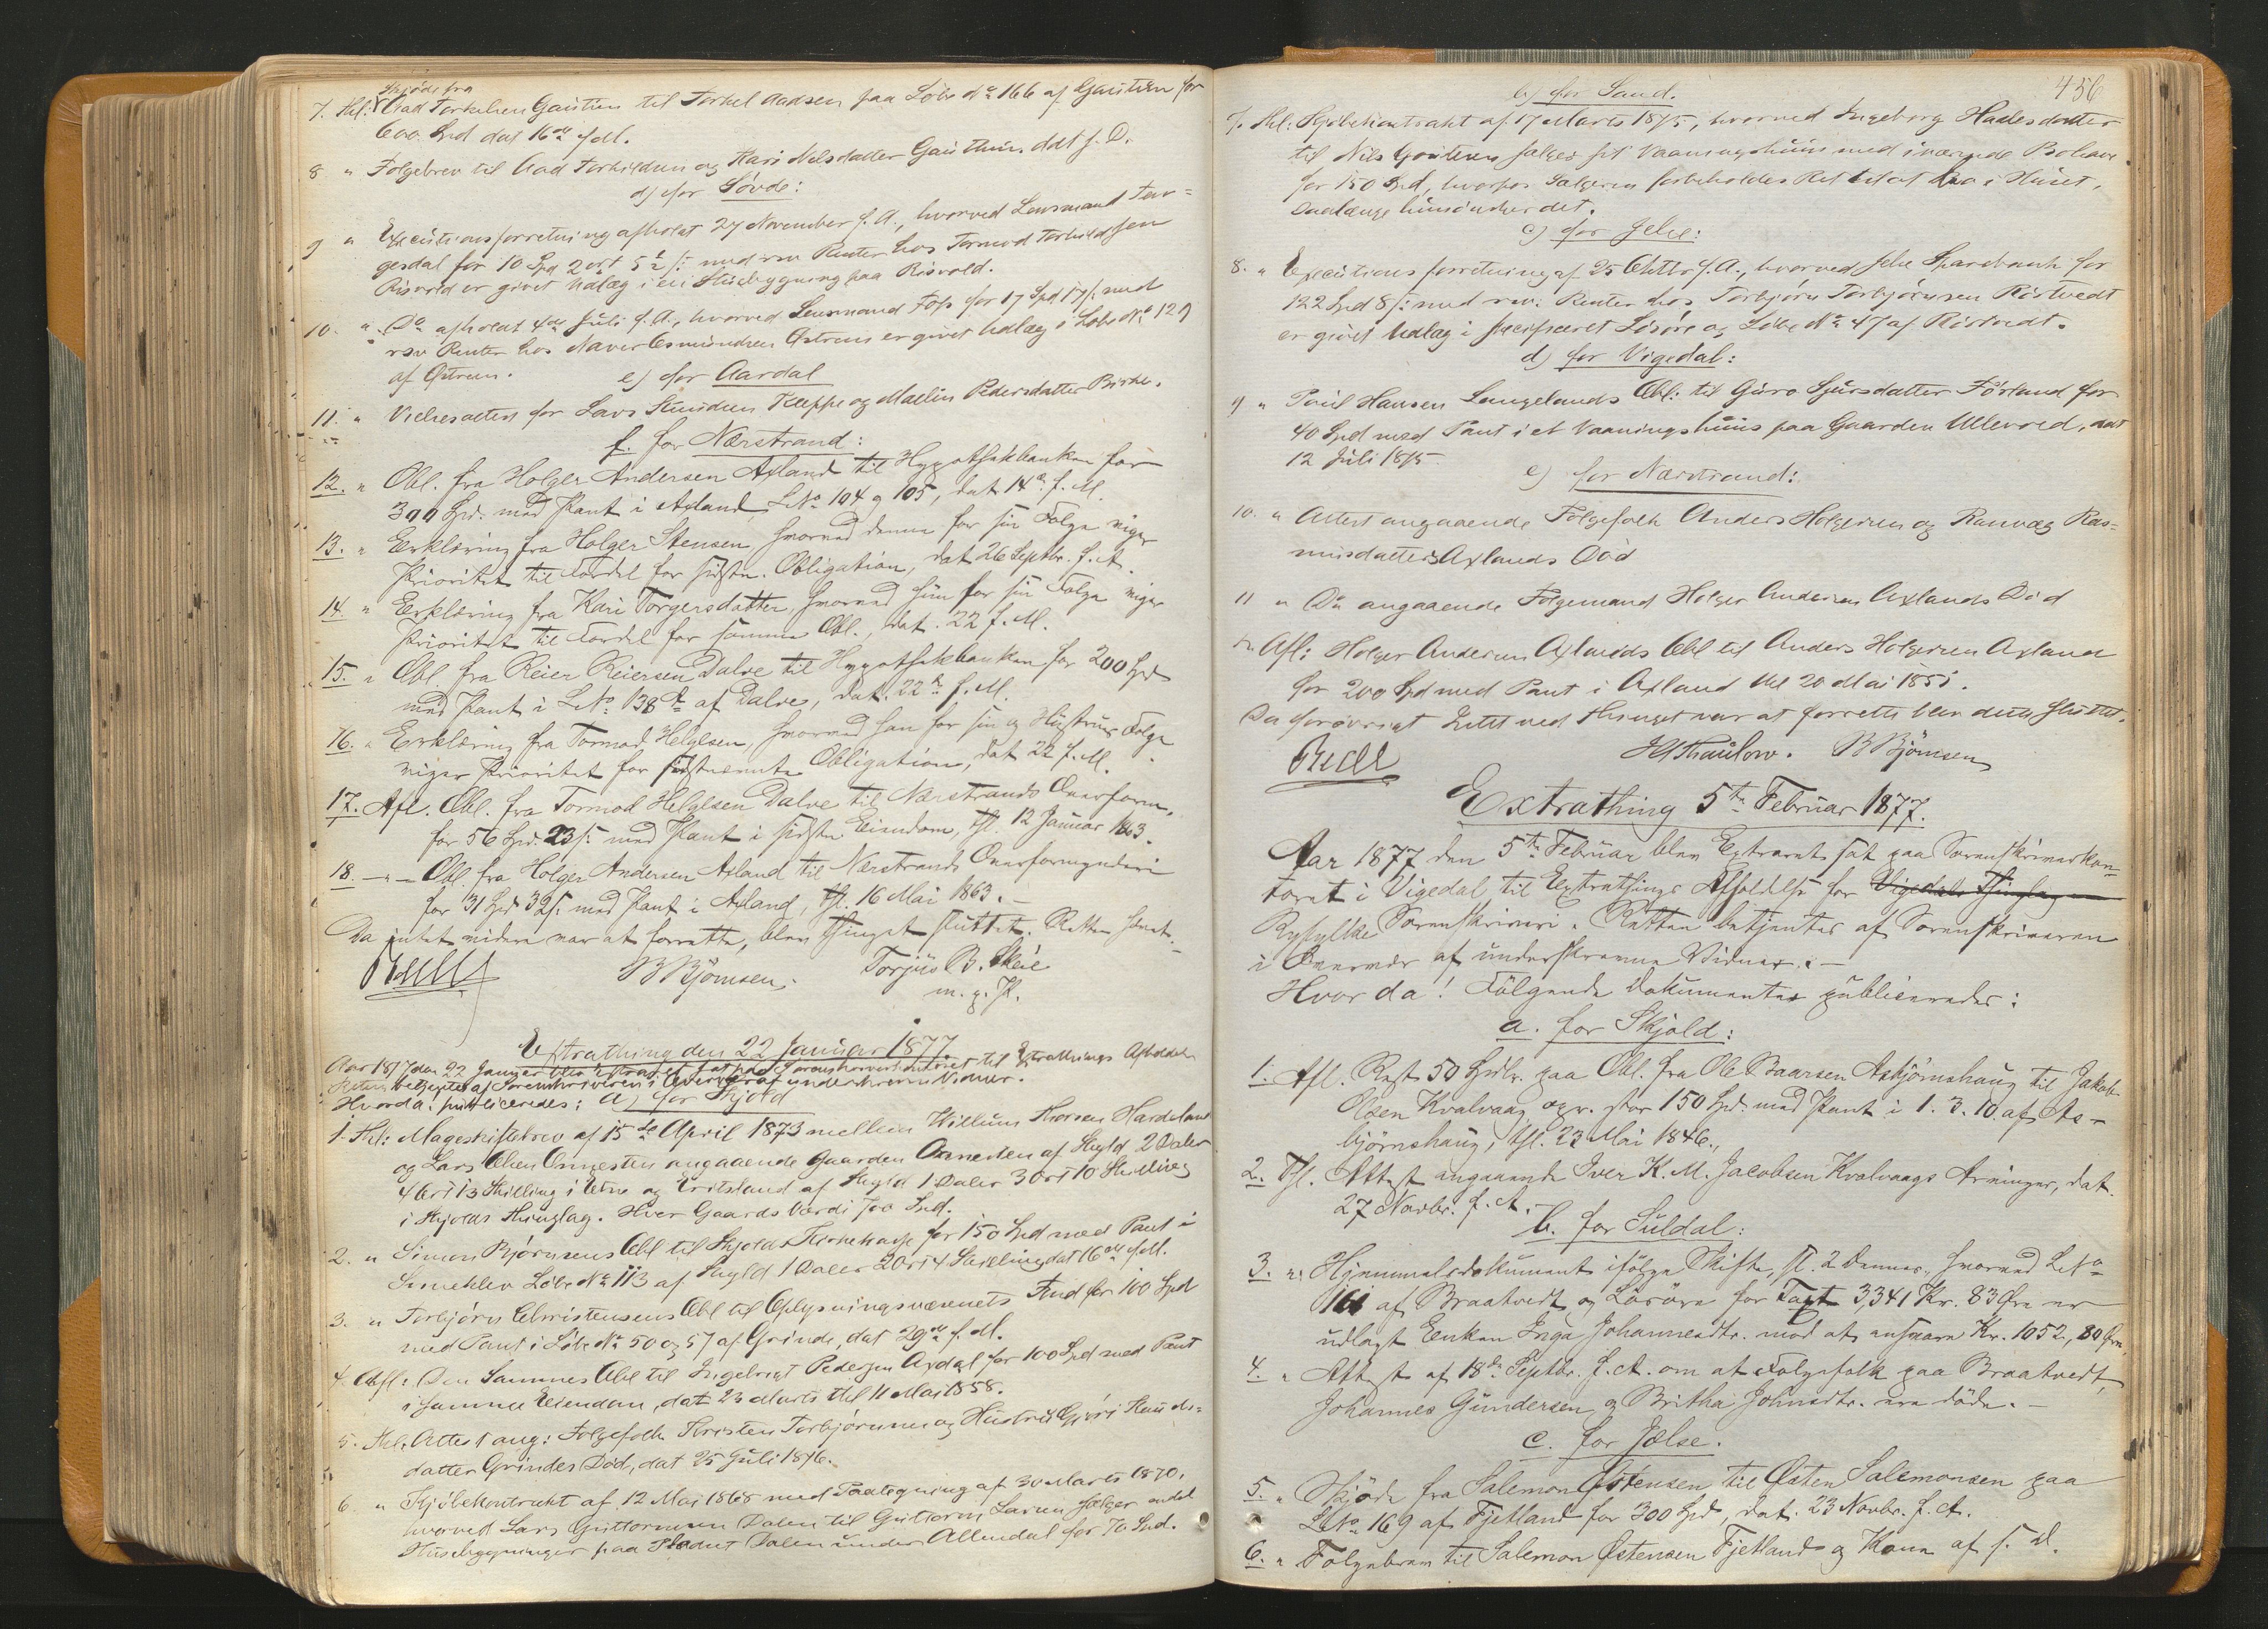 Skjøde fra
7. Thl: Aad Torkelsen Gautun til Torkel Aadsen paa Løbe No 166 af Gautun for
600 Spd dat 16de f.M.
8 " Følgebrev til Aad Torkildsen og Kari Nilsdatter Gautun ddt s. D.
d) for Søvde:
9 " Executionsforretning afholdt 27 November f. A., hvorved Lensmand Tav=
gesdal for 10 Spd 2 ort 5½ s: med rsv Renter hos Tormod Torkildsen
Risvold er givet Udlæg i en Husebygning paa Risvold.
10. " Do afholdt 4de Juli f. A., hvorved Lensmand Foss for 17 Spd 17 s: med
rsv Renter hos Aamund Østreim er givet Udlæg i Løbe No 129
af Østreim.
e) for Aardal
11. " Vielsesattest for Lars Knudsen Kleppe og Malin Pedersdatter Birke.
f. for Nærstrand:
12. " Obl. fra Holger Andersen Axland til Hypothekbanken for
300 Spd. med Pant i Axland, L.No 104 og 105, dat 14de f. M.
13. " Erklæring fra Holger Stensen, hvorved denne for sin Folge viger
Prioritet til Fordel for sidstn. Obligation, dat 26 Septbr. f. A.
14. " Erklæring fra Kari Torgersdatter, hvorved hun for sin Folge viger
Prioritet til Fordel for samme Obl., dat. 22 f. M.
15. " Obl. fra Reier Reiersen Dalve til Hypothekbanken for 200 Spd
med Pant i L.No 138 b af Dalve, dat. 22de f. M.
16. " Erklæring fra Tormod Helgesen, hvorved han for sin og Hustrues Folge
viger Prioritet for sidstnævnte Obligation, dat 22 f. M.
17. Afl. Obl. fra Tormod Helgesen Dalve til Nærstrands Overform.
for 56 Spd. 23 s: med Pant i sidstn Eiendom, thl. 12 Januar 1863.
18. — " — Obl. fra Holger Andersen Axland til Nærstrands Overformynderi
for 31 Spd 32 s: med Pant i Axland, thl. 16 Mai 1863. —
Da intet videre var at forrette, blev Thinget sluttet. Retten hævet.
B Bjørnsen. Torjus B. Skeie
m. p. P.
Extrathing den 22 Januar 1877.
Aar 1877 den 22 Januar blev Extraret sat paa Sorenskriverkontoret til Extrathings Afholdelse
Retten betjentes af Sorenskriveren i Overvær af underskrevne Vidner.
Hvorda: publiceredes: a) for Skjold
1. Thl: Mageskiftebrev af 15de April 1873 mellem Willum Thorsen Hardeland
og Lars Olsen Onnesten angaaende Gaarden Onnesten af Skyld 2 Daler
4 Ort 13 Skilling i Etne og Eritsland af Skyld 1 Daler 3 Ort 10 Skilling
i Skjolds Thinglag. Hver Gaards Værdi 700 Spd.
2. " Simon Bjørnsens Obl til Skjolds Kirkekasse for 150 Spd med Pant i
Løbe No 113 af Skyld 1 Daler 2 Ort 4 Skilling dat 16de f.M.
3. " Torbjørn Christensens Obl til Oplysningsvæsenets Fond for 100 Spd
med Pant i Løbe No 50 og 57 af Grinde, dat 29de f. M.
4. Afl: Den Sammes Obl til Ingebrigt Pedersen Axdal for 100 Spd med Pant
i samme Eiendom, dat 23 Marts thl 11 Mai 1858.
5. Thl. Attest ang: Folgefolk Kristen Torbjørnsen og Hustru Gjøri Knuds=
datter Grindes Død, dat 25 Juli 1876.
6. " Kjøbekontrakt af 12 Mai 1868 med Paategning af 30 Marts 1870,
hvorved Lars Guttormsen Dalen til Guttorm Larsen sælger endel
Husebygninger paa Pladset Dalen under Allendal for 70 Spd.
456
b) for Sand.
7. Thl: Kjøbekontrakt af 17 Marts 1875, hvorved Ingeborg Hadesdatter
til Nils Gautun sælger sit Vaaningshuus med iværende Bohave
for 150 Spd, hvorhos Sælgeren forbeholdes Ret til at bo i Huset,
saalænge hun ønsker det.
c) for Jelse:
8. " Executionsforretning af 25 Oktbr f. A., hvorved Jelse Sparebank for
122 Spd 8 s: med rsv: Renter hos Torbjørn Torbjørnsen Røstvedt
er givet Udlæg i specificeret Løsøre og Løbe No 47 af Røstvedt.
d) for Vigedal:
9 " Paul Hansen Langelands Obl: til Guro Sjursdatter Førland for
40 Spd med Pant i et Vaaningshuus paa Gaarden Ullevred, dat
12 Juli 1875.
e) for Nærstrand:
10. " Attest angaaende Folgefolk Anders Holgersen og Ranvæg Ras=
musdatters Axlands Død
11 " Do angaaende Folgemand Holger Andersen Axlands Død
12 Afl: Holger Andersen Axlands Obl til Anders Holgersen Axland
for 200 Spd med Pant i Axland thl 20 Mai 1855.
Da forøvrigt Intet ved Thinget var at forrette blev dette sluttet.
H Thaulow. B Bjørnsen
Extrathing 5te Februar 1877.
Aar 1877 den 5te Februar blev Extraret sat paa Sorenskriverkon-
toret i Vigedal til Extrathings Afholdelse for Vigedals Thinglag
Ryfylke Sorenskriveri. Retten betjentes af Sorenskriveren
i Overvær af underskrevne Vidner. —
Hvor da! Følgende Dokumenter publiceredes:
a. for Skjold:
1. Afl. Rest 50 Spdlr. paa Obl. fra Ole Baarsen Asbjørnshaug til Jakob
Olsen Kvalvaag opr. stor 150 Spd. med Pant i 1. 3. 10. af As-
bjørnshaug, thl. 23 Mai 1846.
2. Thl. Attest angaaende Iver K. M. Jacobsen Kvalvaags Arvinger, dat.
27 Novbr. f. A.
b. for Suldal:
3. " Hjemmelsdokument ifølge Skifte, sl. 2 dennes, hvorved L.No
161 af Braatvedt og Løsøre for Taxt 3,341 Kr. 83 Øre er
udlagt Enken Inga Johannesdtr. mod at ansvare Kr. 1052,80 Øre.
4. " Attest af 18de Septbr. f. A. om at Folgefolk paa Braatvedt,
Johannes Gundersen og Britha Johnsdtr. ere døde. —
c. for Jelse.
5. " Skjøde fra Salemon Østensen til Østen Salemonsen paa
L.No 169 af Fjetland for 300 Spd, dat. 23 Novbr. f. A.
6. " Følgebrev til Salemon Østensen Fjetland og Kone af s. D.